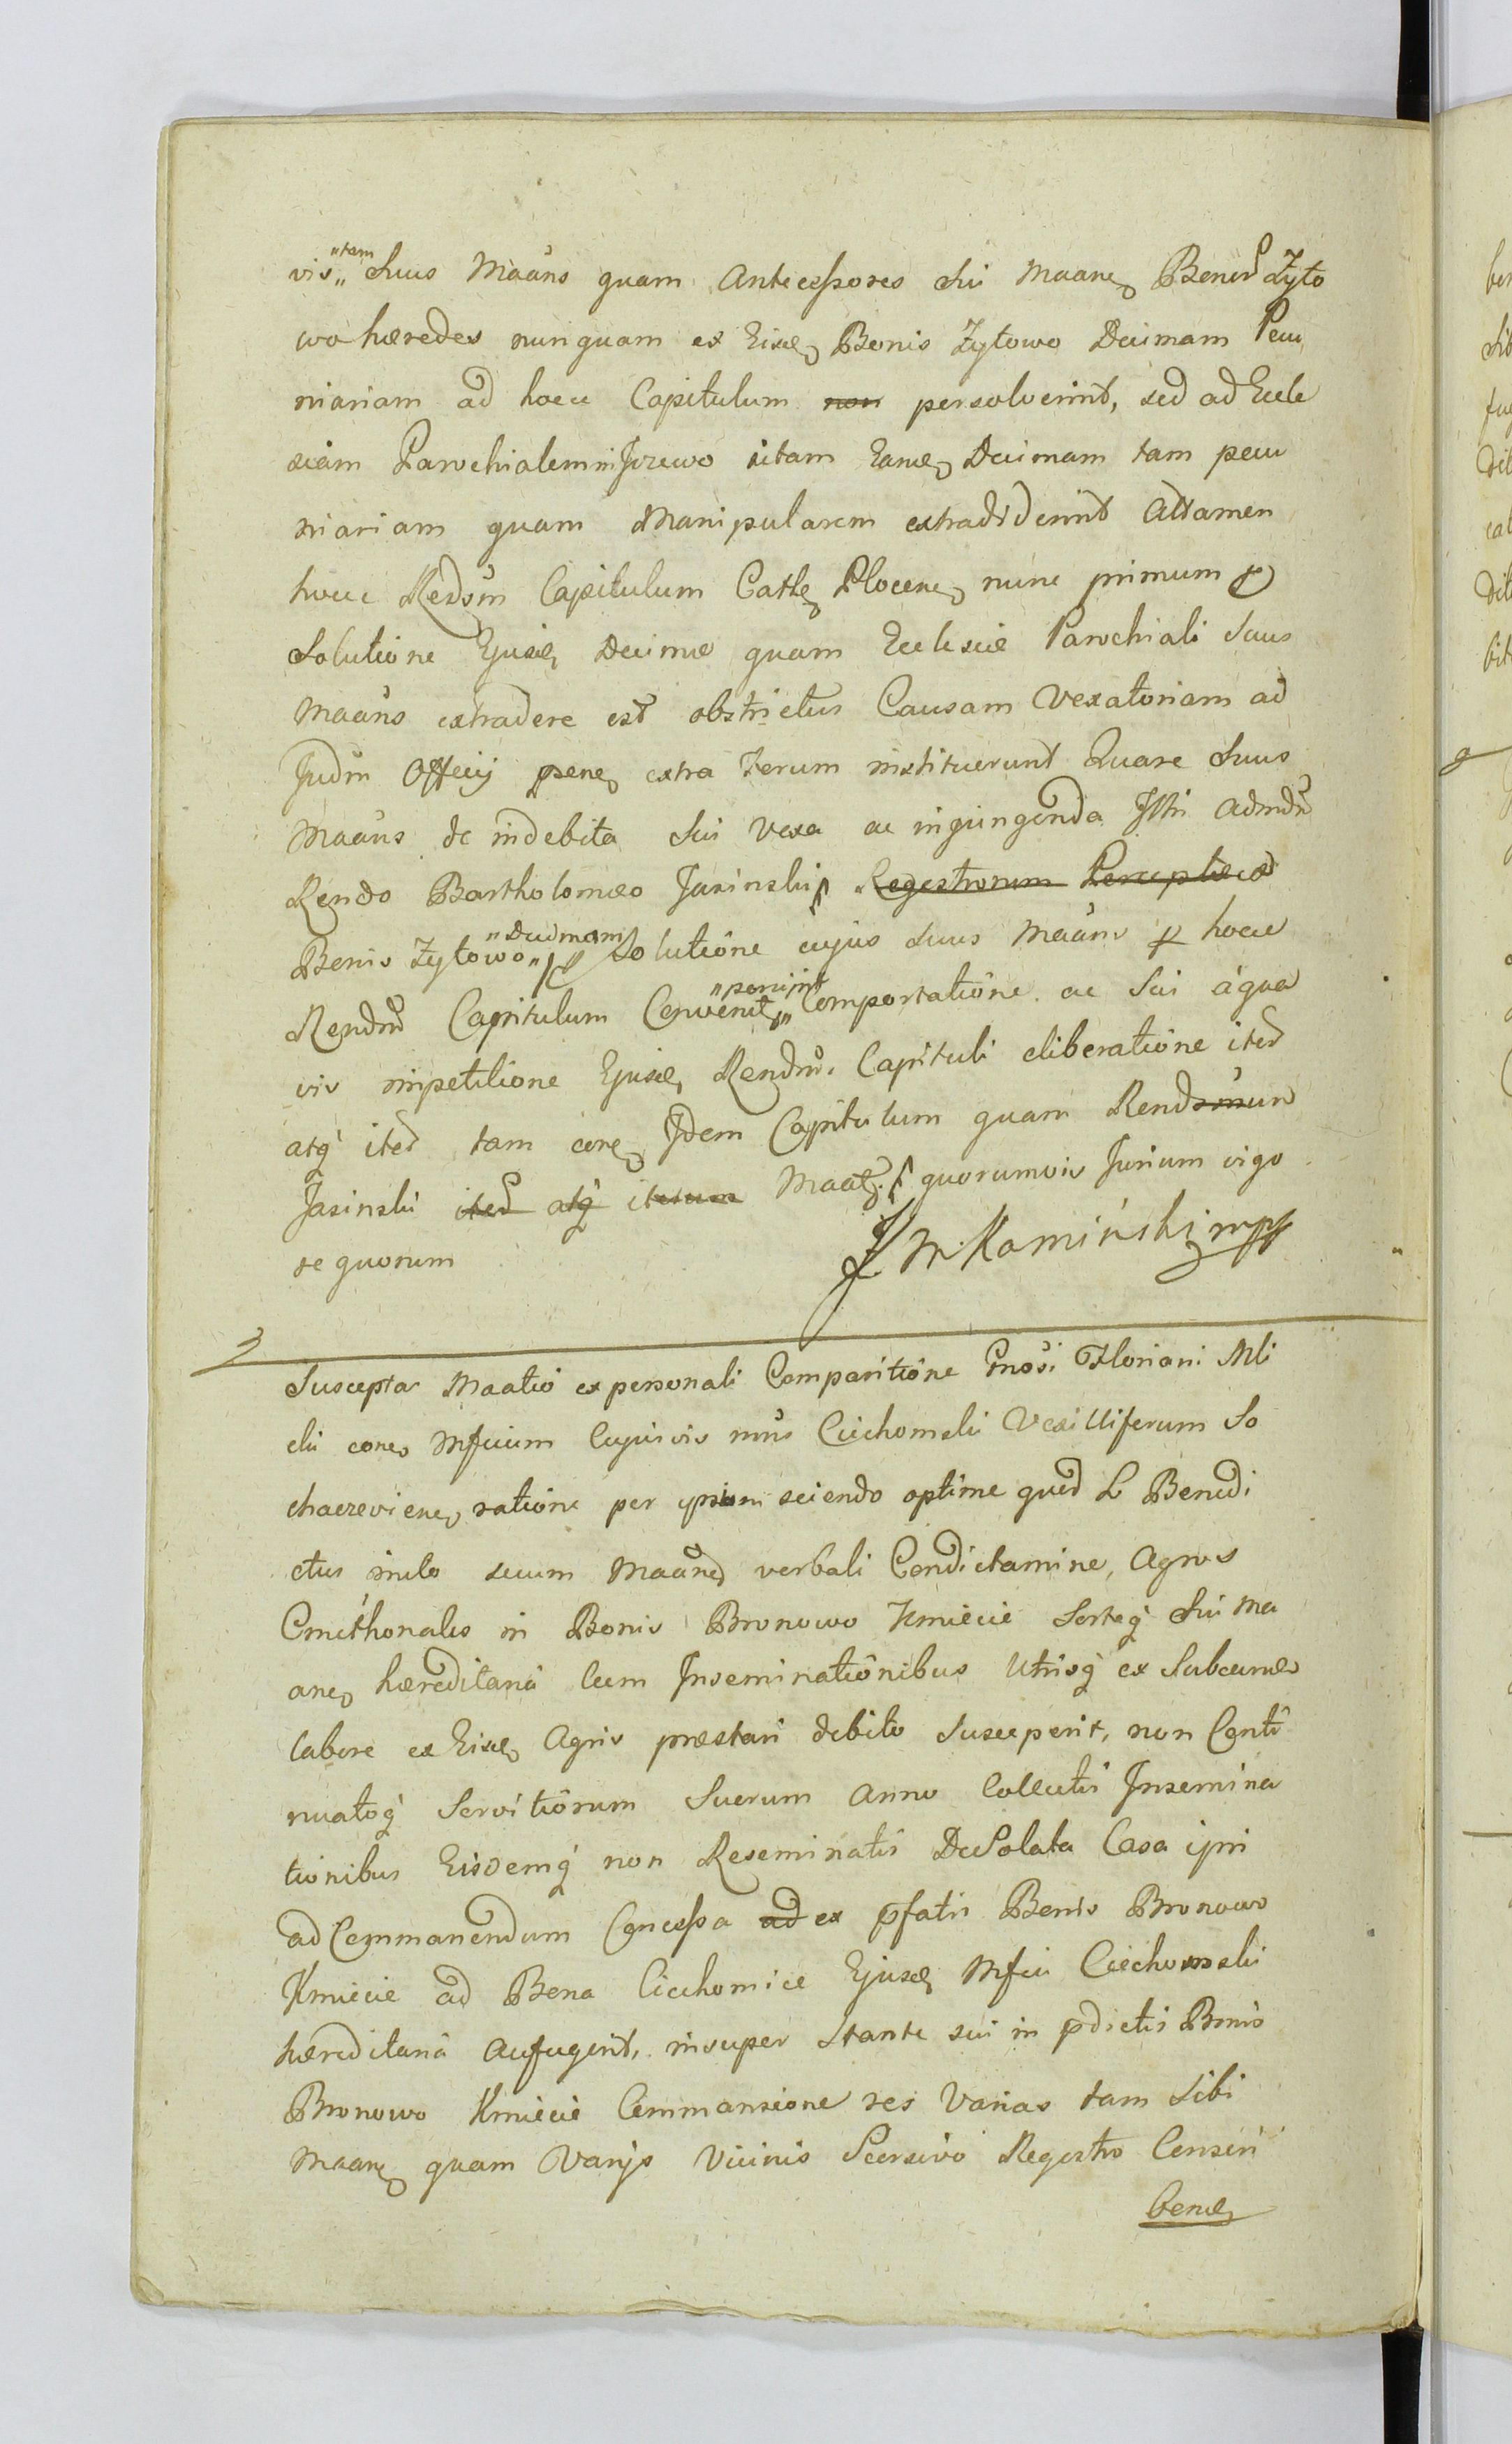 vis „tam„ Suus Maáns quam Antecessores Sui Maane Benes Zyto
wo hæredes nunquam ex Eisde Bonis Zytowo Decimam Pecu
niariam ad hocce Capitulum non persolverint, sed ad Eccle
siam Parochialem in Jzewo sitam Eamde Decimam tam pecu
niariam quam Manipularem extradiderint Attamen
hocce Rendsm Capitulum Cathe Plocene nunc primum p
Solutione Ejusde Decimæ quam Ecclesiæ Parochiali Suus
Maáns extradere est obstrictus Causam Vexatoriam ad
Judm Officij pene extra Terum instituerunt Quare Suus
Maáns de indebita Sui Vexa ac injungenda Istri Admdu
Rendo Bartholomæo Jasinski Regestrorum Perceptæ ad
Bonis Zytowo „Decimam„ p Solutióne cujus Suus Maáns p hocce
Rendm Capitulum Convenit „ponint„ Comportatióne ac Sui áqua
vis impetitione Ejusde Rendm Capituli eliberatióne ited
atq ited tam cone Idem Capitulum quam Rendsmun
Jasinski ited atq iterum Maate quorumvis Jurium vigo
re quorum
J M Kamiński mpp
Suscepta Maatio ex personali Comparitióne Gnosi Floriani Mli
cki cone Mficum Cujusvis nmis Ciechomski Vexilliferum So
chaczeviene ratióne per ipsum sciendo optime qued L Benedi
ctus inito secum Maane verbali Condictamine, Agros
Cmethonales in Bonis Bronowo Kmiecie Sorteq Sui Ma
ane hæreditaria Cum Inseminatiónibus Utrisq ex Subeunde
labore ex Eisde Agris præstari debito Susceperit, non Conti
nuatoq Servitiórum Suorum Anno Collectis Insemina
tionibus Eisdemq non Reseminatis DeSolata Casa ipsi
ad Commanendum Concessa ad ex pfatis Bonis Bronowo
Kmiecie ad Bona Ciechomice Ejusde Mfici Ciechomski
hæreditaria Aufugerit, insuper Stante sui in pdictis Bonis
Bronowo Kmiecie Commansione res Varias tam Sibi
Maane quam Varijs Vicinis Seorsivo Regestro Censeri
Conde